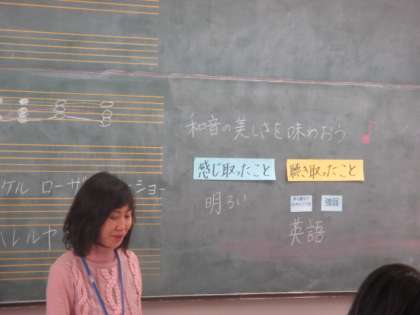 和音の美しさを味わおう
感じ取ったこと
聴き取ったこと
明るい
強弱
英語
ケル ローザ
ショー
ハレルヤ